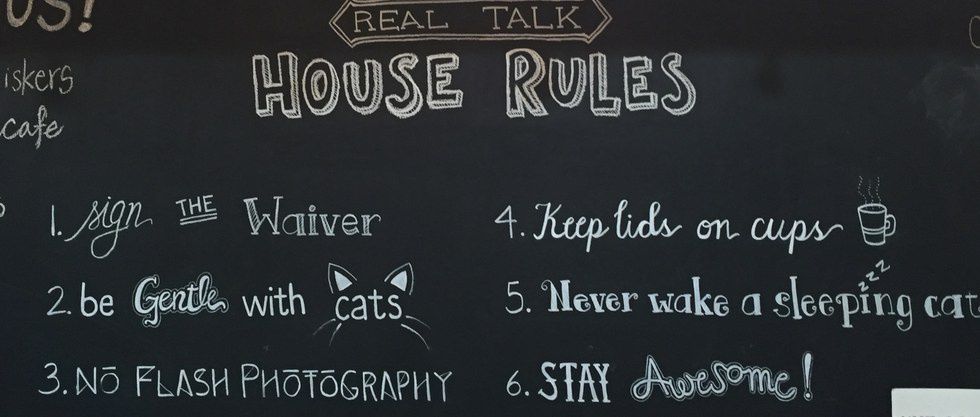 US!
iskers
cafe
REAL TALK
HOUSE RULES
1. sign THE Waiver
2. be Gentle with cats
3. NŌ FLASH PHŌTŌGRAPHY
4. Keep lids on cups
5. Never wake a sleeping cat
zzz
6. STAY Awesome!